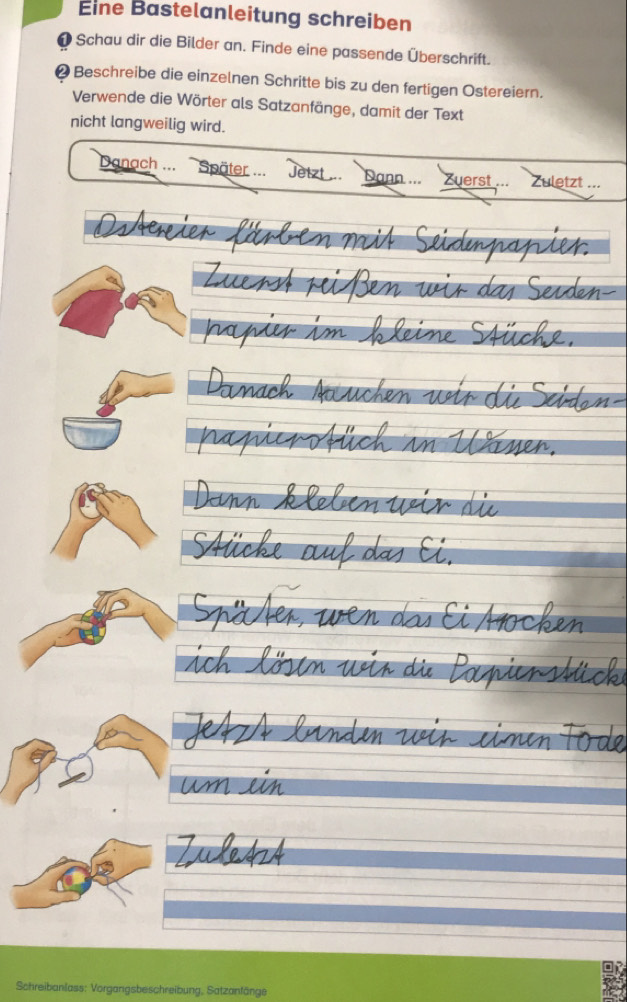 Eine Bastelanleitung schreiben
1 Schau dir die Bilder an. Finde eine passende Überschrift.
2 Beschreibe die einzelnen Schritte bis zu den fertigen Ostereiern.
Verwende die Wörter als Satzanfänge, damit der Text
nicht langweilig wird.
Danach ... Später ... Jetzt ... Dann ... Zuerst ... Zuletzt ...
Ostereier färben mit Seidenpapier.
Zuerst reißen wir das Seiden-
papier im kleine Stücke.
Danach tauchen wir die Seiden-
papierstück in Wasser.
Dann kleben wir die
Stücke auf das Ei.
Später, wen das Ei trocken
ich lösen wir die Papierstück
Jetzt binden wir einen Fode
um ein
Zuletzt
Schreibanlass: Vorgangsbeschreibung, Satzanfänge